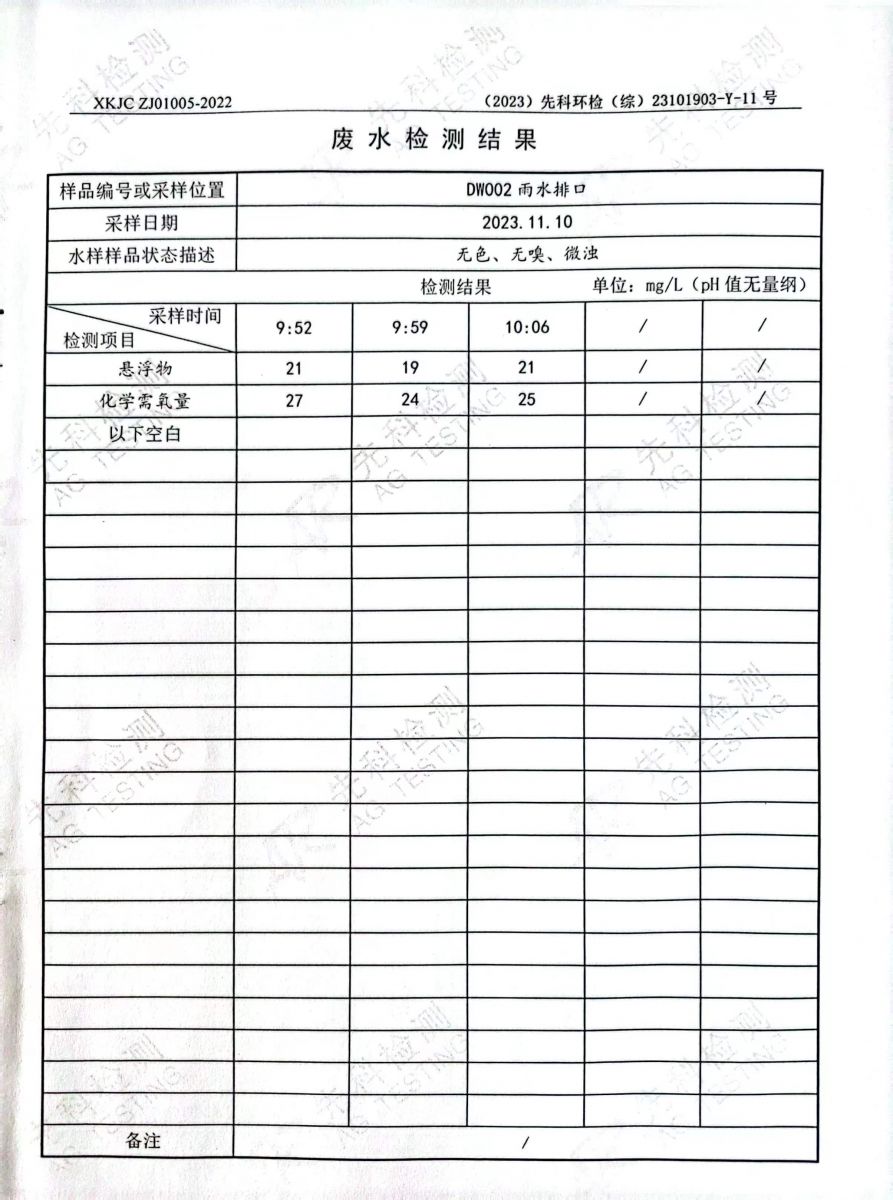 XKJC ZJ01005-2022 （2023）先科环检（综）23101903-Y-11 号
废水检测结果
样品编号或采样位置 DW002 雨水排口
采样日期 2023.11.10
水样样品状态描述 无色、无嗅、微浊
检测结果 单位：mg/L（pH 值无量纲）
采样时间
检测项目 9:52 9:59 10:06 / /
悬浮物 21 19 21 / /
化学需氧量 27 24 25 / /
以下空白
备注 /
先科检测
AG TESTING